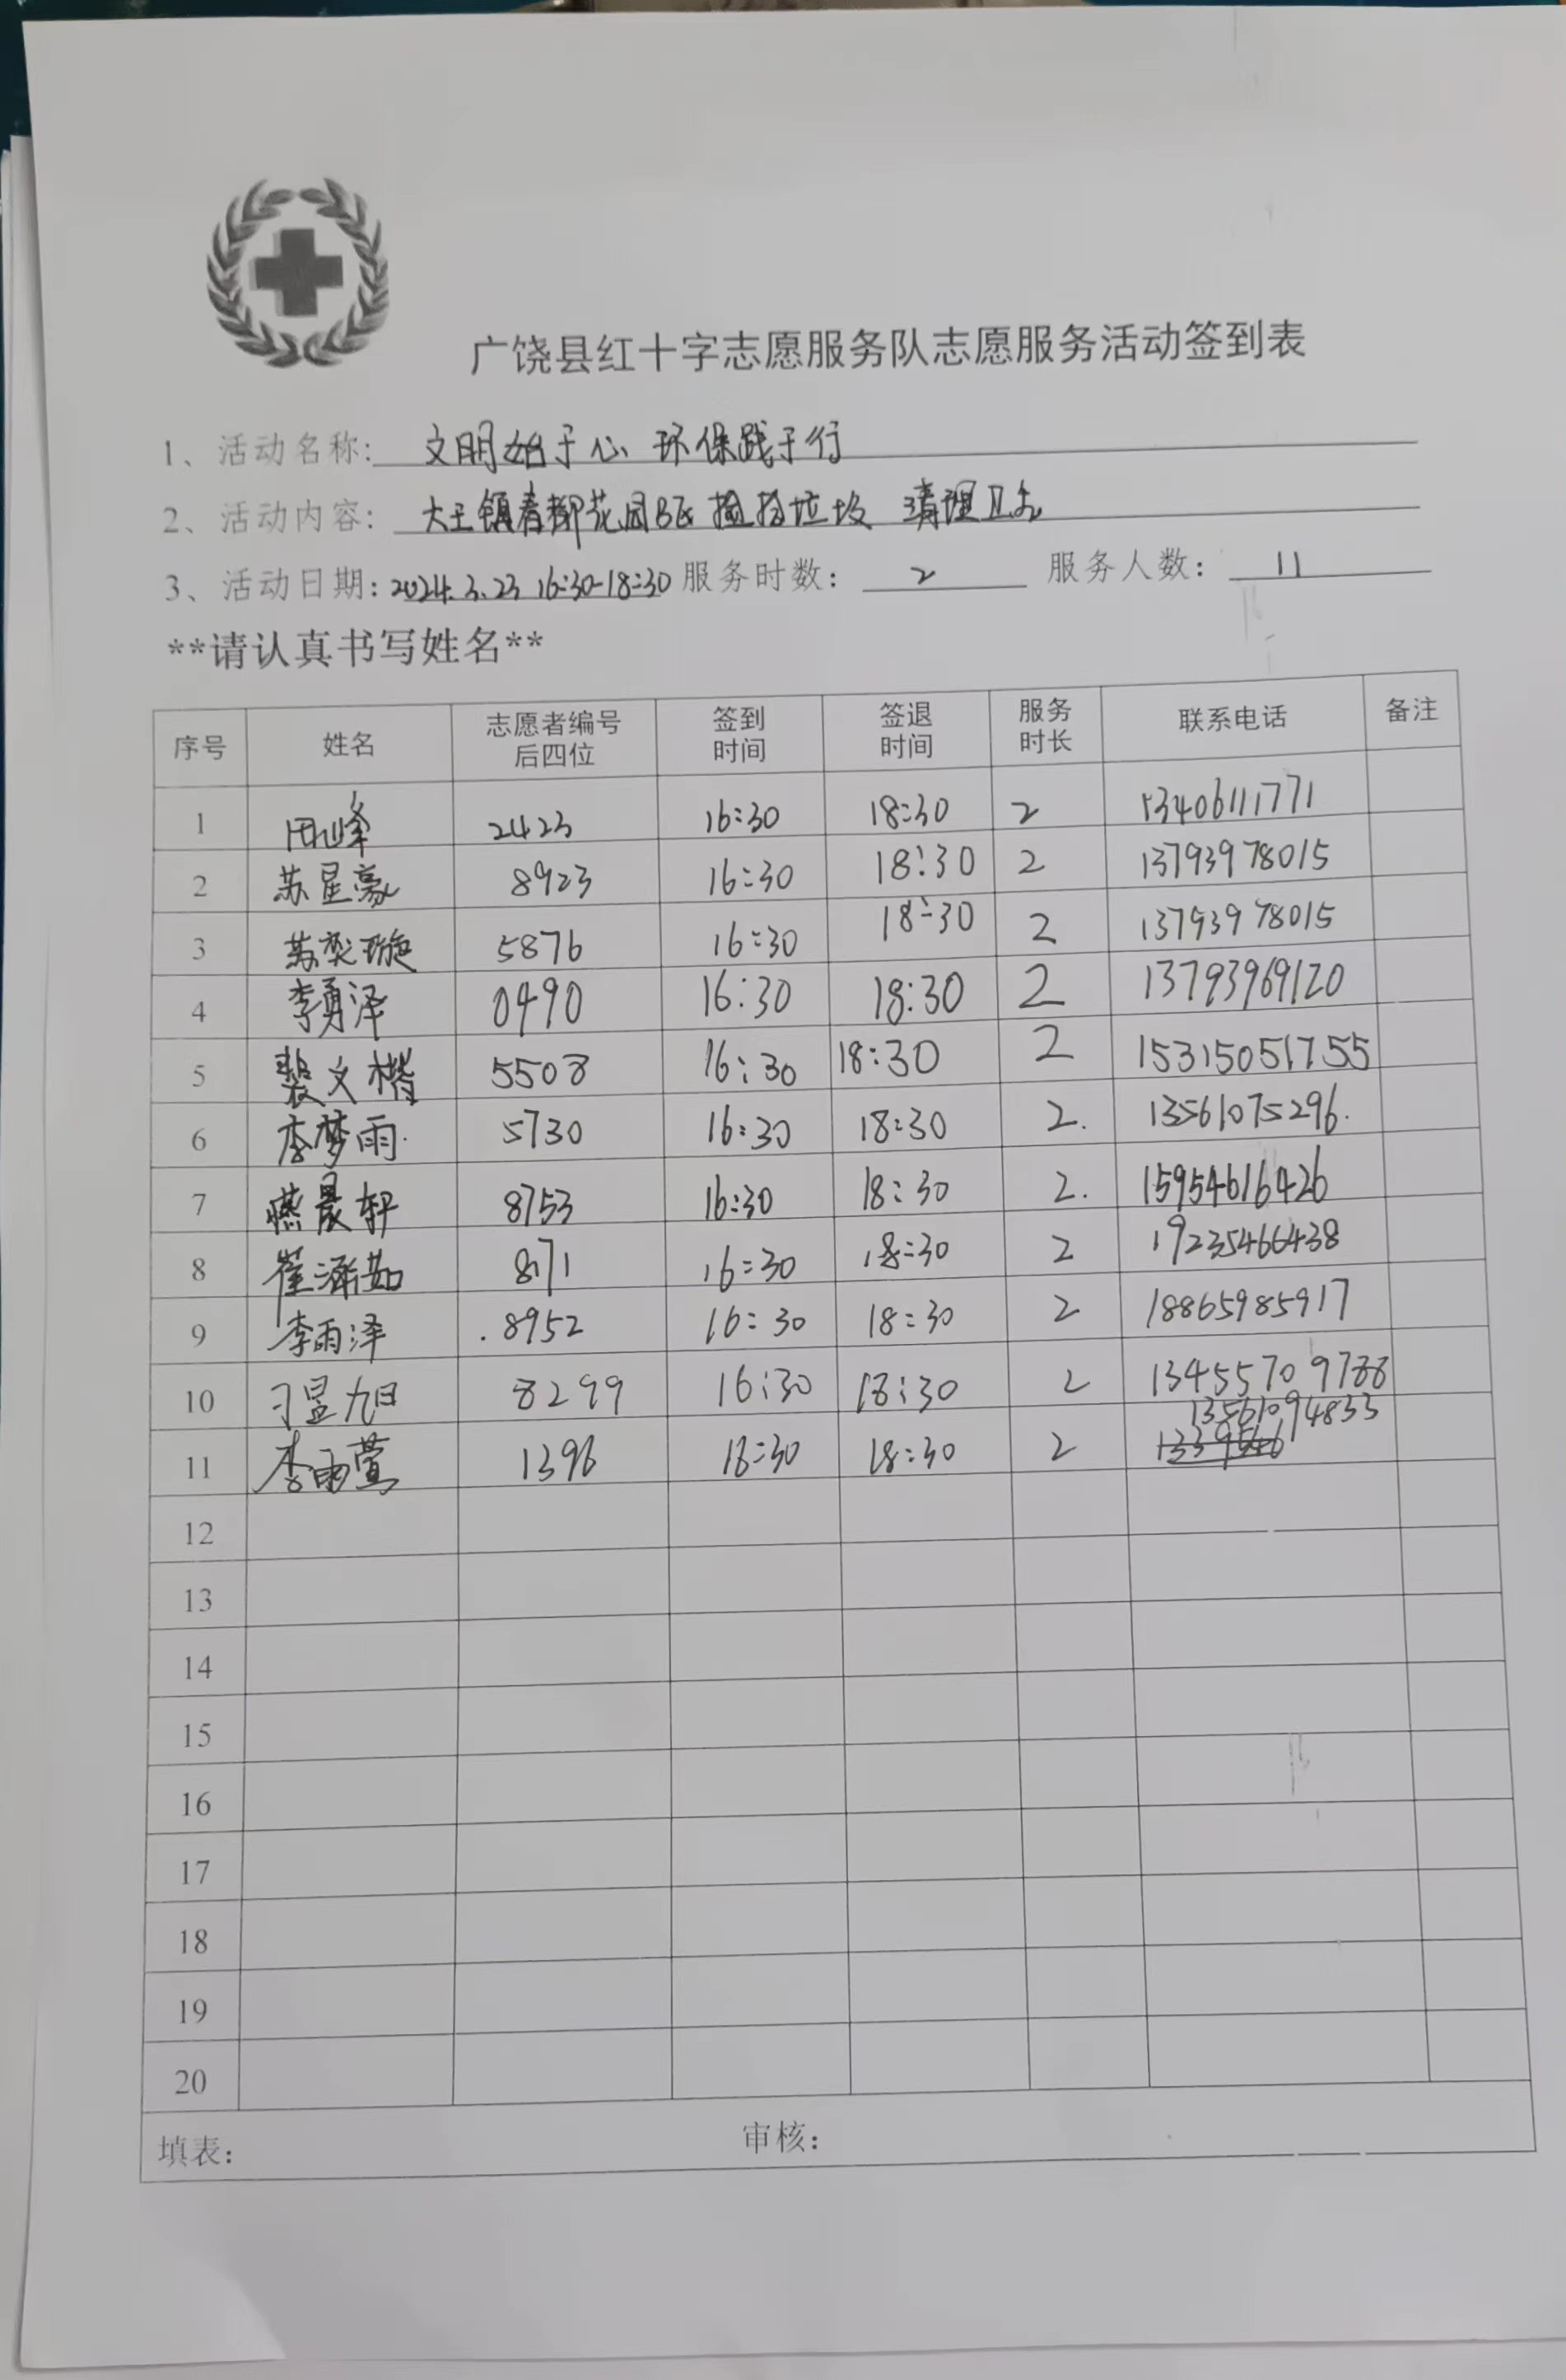 广饶县红十字志愿服务队志愿服务活动签到表
1、活动名称: 文明始于心 环保践于行
2、活动内容: 大王镇春都花园B区 捡拾垃圾 清理卫生
3、活动日期: 2024.3.23 16:30-18:30 服务时数: 2 服务人数: 11
**请认真书写姓名**
序号 姓名 志愿者编号后四位 签到时间 签退时间 服务时长 联系电话 备注
1 峰 2423 16:30 18:30 2 13406111771
2 苏星豪 8923 16:30 18:30 2 13793978015
3 苏奕璇 5876 16:30 18:30 2 13793978015
4 李勇泽 0490 16:30 18:30 2 13793969120
5 裴文楷 5508 16:30 18:30 2 15315051755
6 李梦雨 5730 16:30 18:30 2. 13561075296.
7 燕晨轩 8753 16:30 18:30 2. 15954616426
8 崔涵茹 8171 16:30 18:30 2 19235466438
9 李雨泽 .8952 16:30 18:30 2 18865985917
10 刁昱旭 8299 16:30 18:30 2 13455709788
11 李雨萱 1396 16:30 18:30 2 13561094833
12
13
14
15
16
17
18
19
20
填表: 审核: